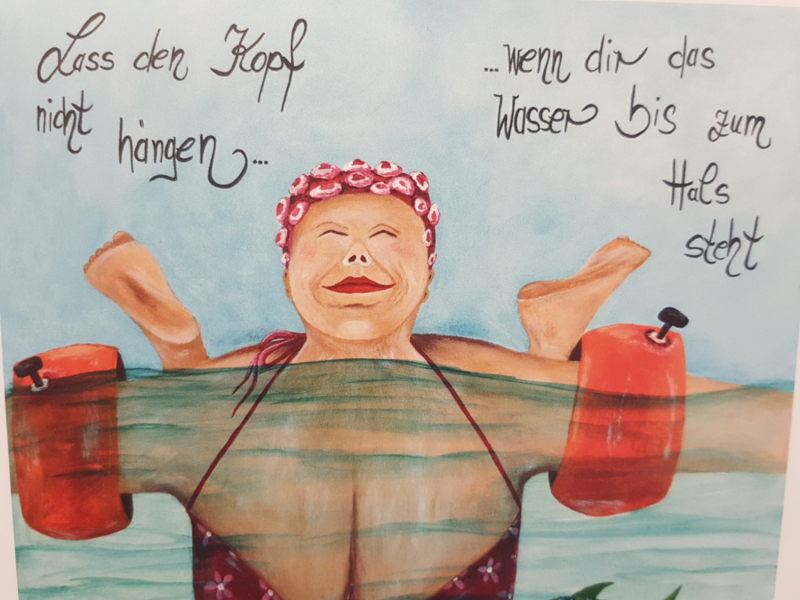 Lass den Kopf
nicht hängen...
...wenn dir das
Wasser bis zum
Hals
steht